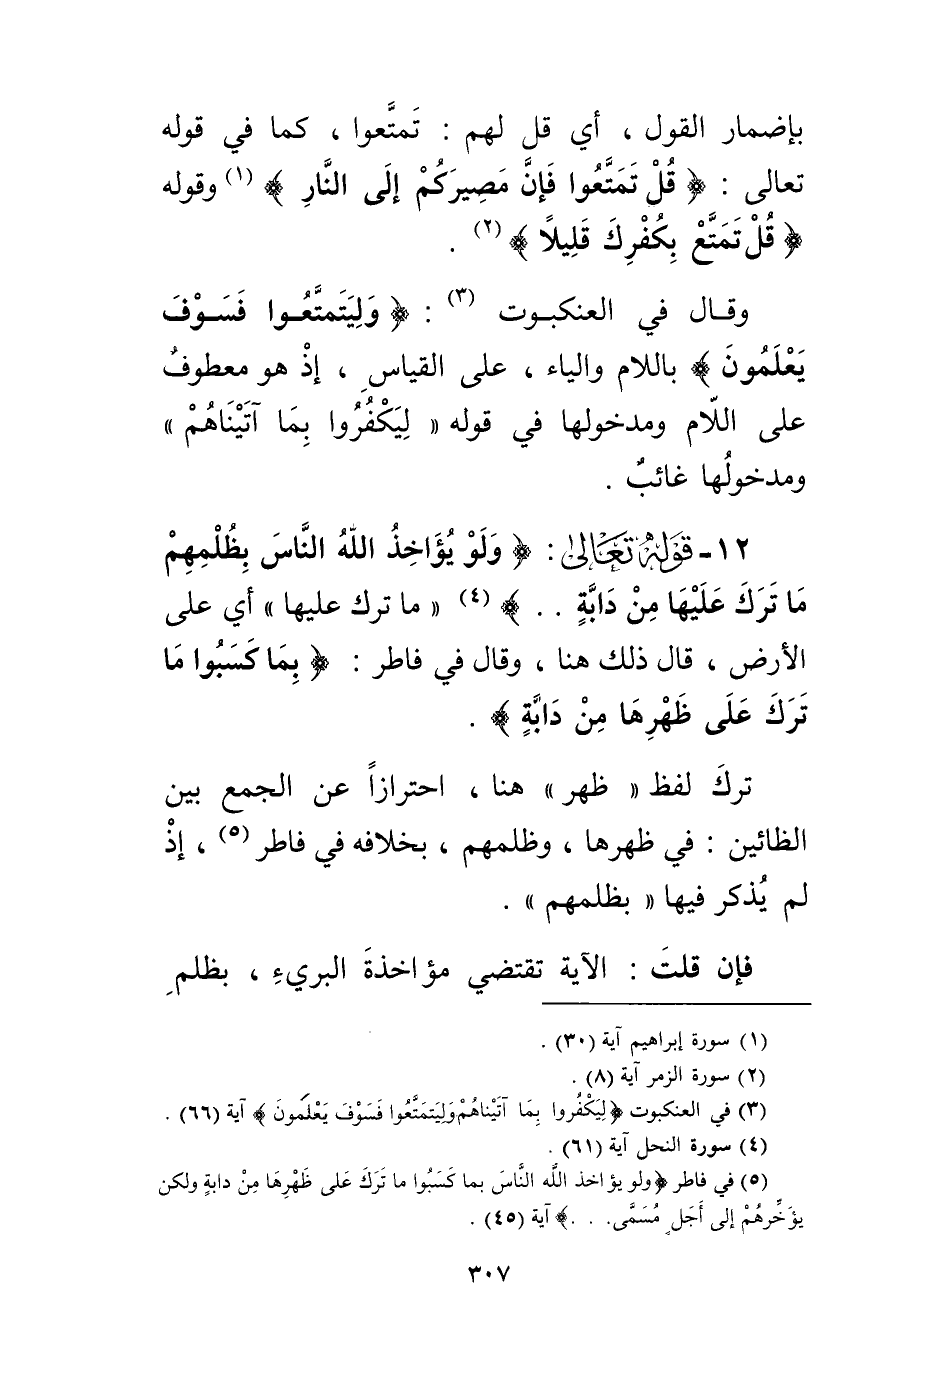 بإضمار القول ، أي قل لهم : تَمتَّعوا ، كما في قوله
تعالى : ﴿ قُلْ تَمَتَّعُوا فَإنَّ مَصِيرَكُمْ إلَى النَّارِ ﴾ (١) وقوله
﴿ قُلْ تَمَتَّعْ بِكُفْرِكَ قَلِيلًا ﴾ (٢) .
وقـال في العنكبـوت (٣) : ﴿ وَلِيَتَمتَّعُـوا فَسَـوْفَ
يَعْلَمُونَ ﴾ باللام والياء ، على القياسِ ، إذْ هو معطوفُ
على اللّام ومدخولها في قوله « لِيَكْفُرُوا بِمَا آتَيْنَاهُمْ »
ومدخولُها غائبٌ .
١٢ - قَوْلُهُ تَعَالَىٰ : ﴿ وَلَوْ يُؤَاخِذُ اللَّهُ النَّاسَ بِظُلْمِهِمْ
مَا تَرَكَ عَلَيْهَا مِنْ دَابَّةٍ . . ﴾ (٤) « ما ترك عليها » أي على
الأرض ، قال ذلك هنا ، وقال في فاطر : ﴿ بِمَا كَسَبُوا مَا
تَرَكَ عَلَى ظَهْرِهَا مِنْ دَابَّةٍ ﴾ .
تركَ لفظ « ظهر » هنا ، احترازاً عن الجمع بين
الظائين : في ظهرها ، وظلمهم ، بخلافه في فاطر (٥) ، إذْ
لم يُذكر فيها « بظلمهم » .
فإن قلتَ : الآية تقتضي مؤاخذةَ البريءِ ، بظلمِ
(١) سورة إبراهيم آية (٣٠) .
(٢) سورة الزمر آية (٨) .
(٣) في العنكبوت ﴿لِيَكْفُروا بِمَا آتَيْناهُمْ وَلِيَتمَتَّعُوا فَسَوْفَ يَعْلَمُونَ ﴾ آية (٦٦) .
(٤) سورة النحل آية (٦١) .
(٥) في فاطر ﴿ولو يؤاخذ اللَّه النَّاسَ بما كَسَبُوا ما تَرَكَ عَلى ظَهْرِهَا مِنْ دابةٍ ولكن
يؤَخِّرهُمْ إلى أَجَلٍ مُسَمَّى. . . .﴾ آية (٤٥) .
٣٠٧